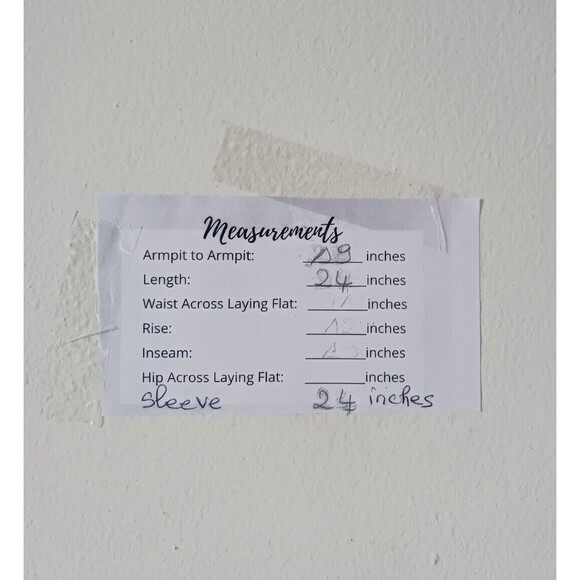 Measurements
Armpit to Armpit: 19 inches
Length: 24 inches
Waist Across Laying Flat: ______ inches
Rise: ______ inches
Inseam: ______ inches
Hip Across Laying Flat: ______ inches
Sleeve 24 inches